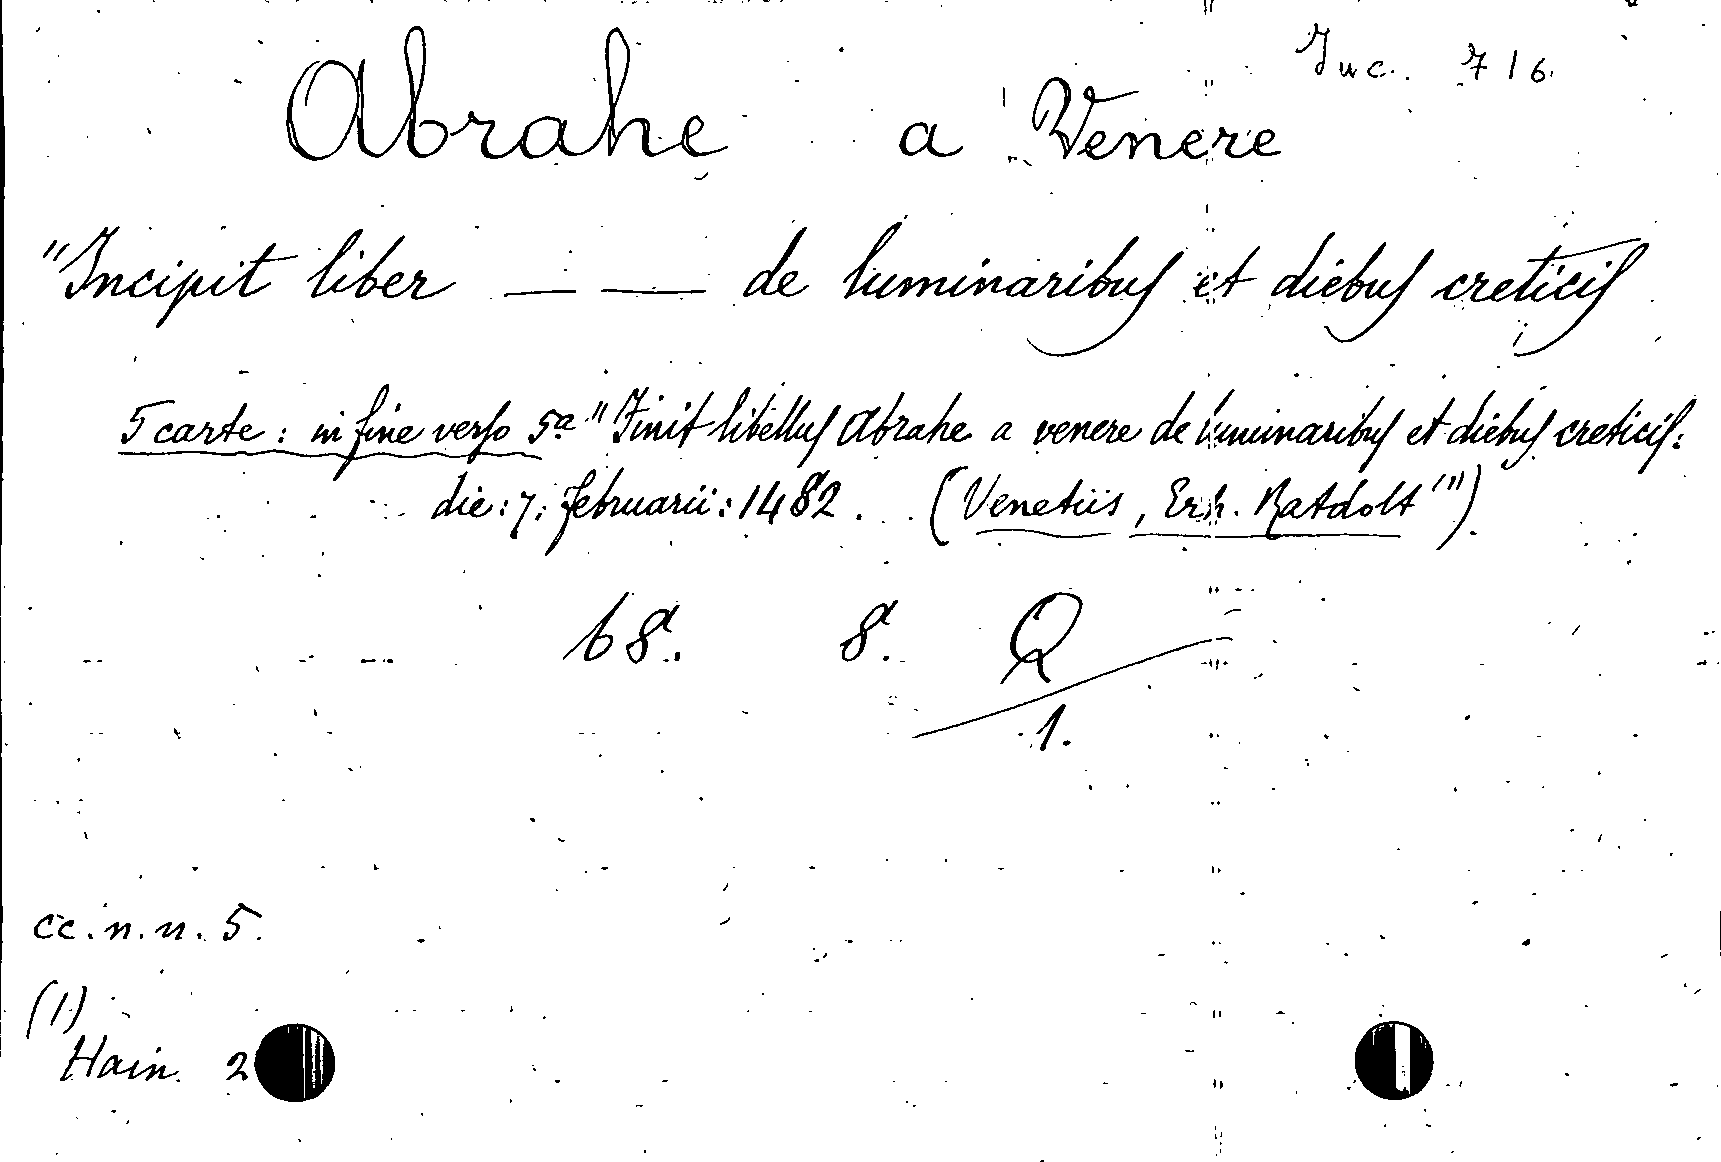 Inc. 716.
Abrahe a Venere
"Incipit liber — — de luminaribus et diebus creticis
5 carte: in fine verso 5a "Finit libellus Abrahe a venere de luminaribus et diebus creticis:
die: 7: februarii: 1482. (Venetiis, Erh. Ratdolt '")
68. 8. Q
1.
cc. n. n. 5.
(1)
Hain. 2